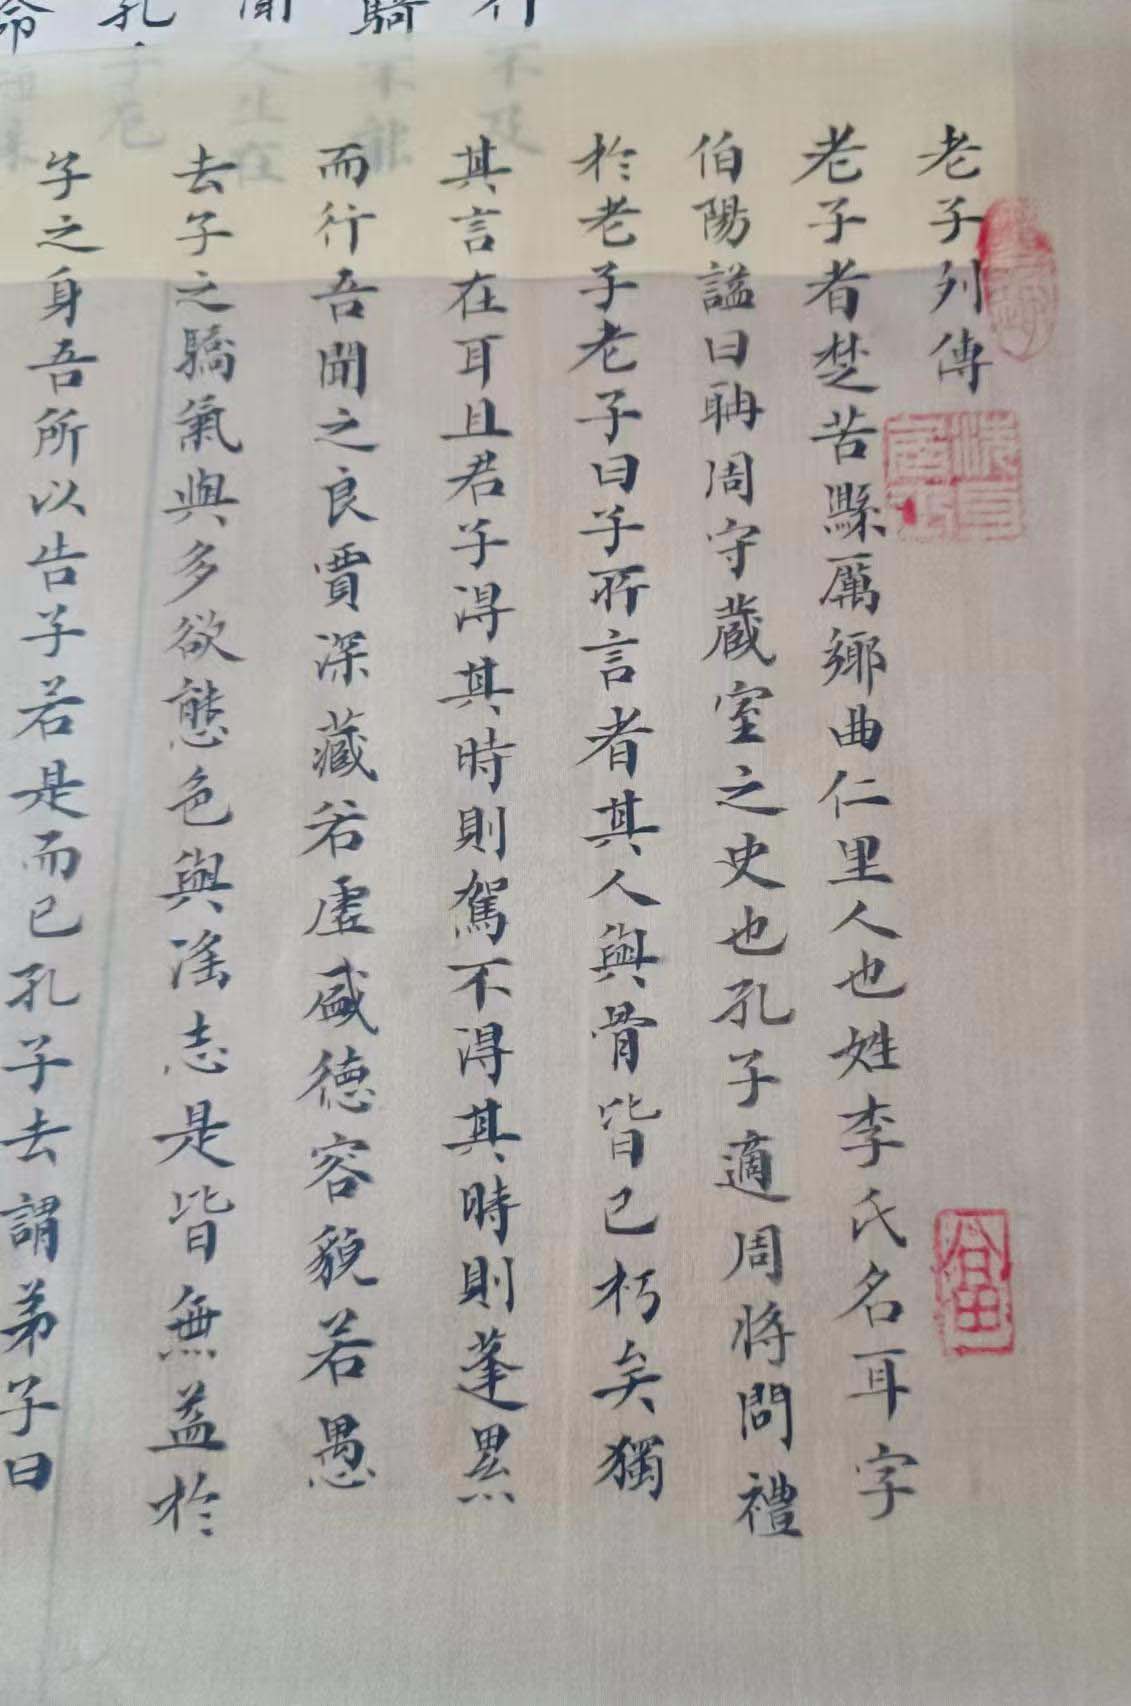 老子列傳
老子者楚苦縣厲鄉曲仁里人也姓李氏名耳字
伯陽謚曰聃周守藏室之史也孔子適周將問禮
於老子老子曰子所言者其人與骨皆已朽矣獨
其言在耳且君子得其時則駕不得其時則蓬累
而行吾聞之良賈深藏若虛盛德容貌若愚
去子之驕氣與多欲態色與淫志是皆無益於
子之身吾所以告子若是而已孔子去謂弟子曰